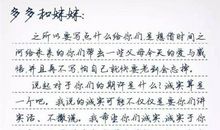 多多和妹妹:
之所以要写点什么给你们是想借时间之
河给未来的你们带去一些父母今天的爱与感
悟并且再不写怕自己就快要老到会忘掉。
说起对于你们的期许是什么?诚实算是
一个吧。我说的诚实可能不仅仅是要你们讲
实话、不撒谎,我希望你们诚实于